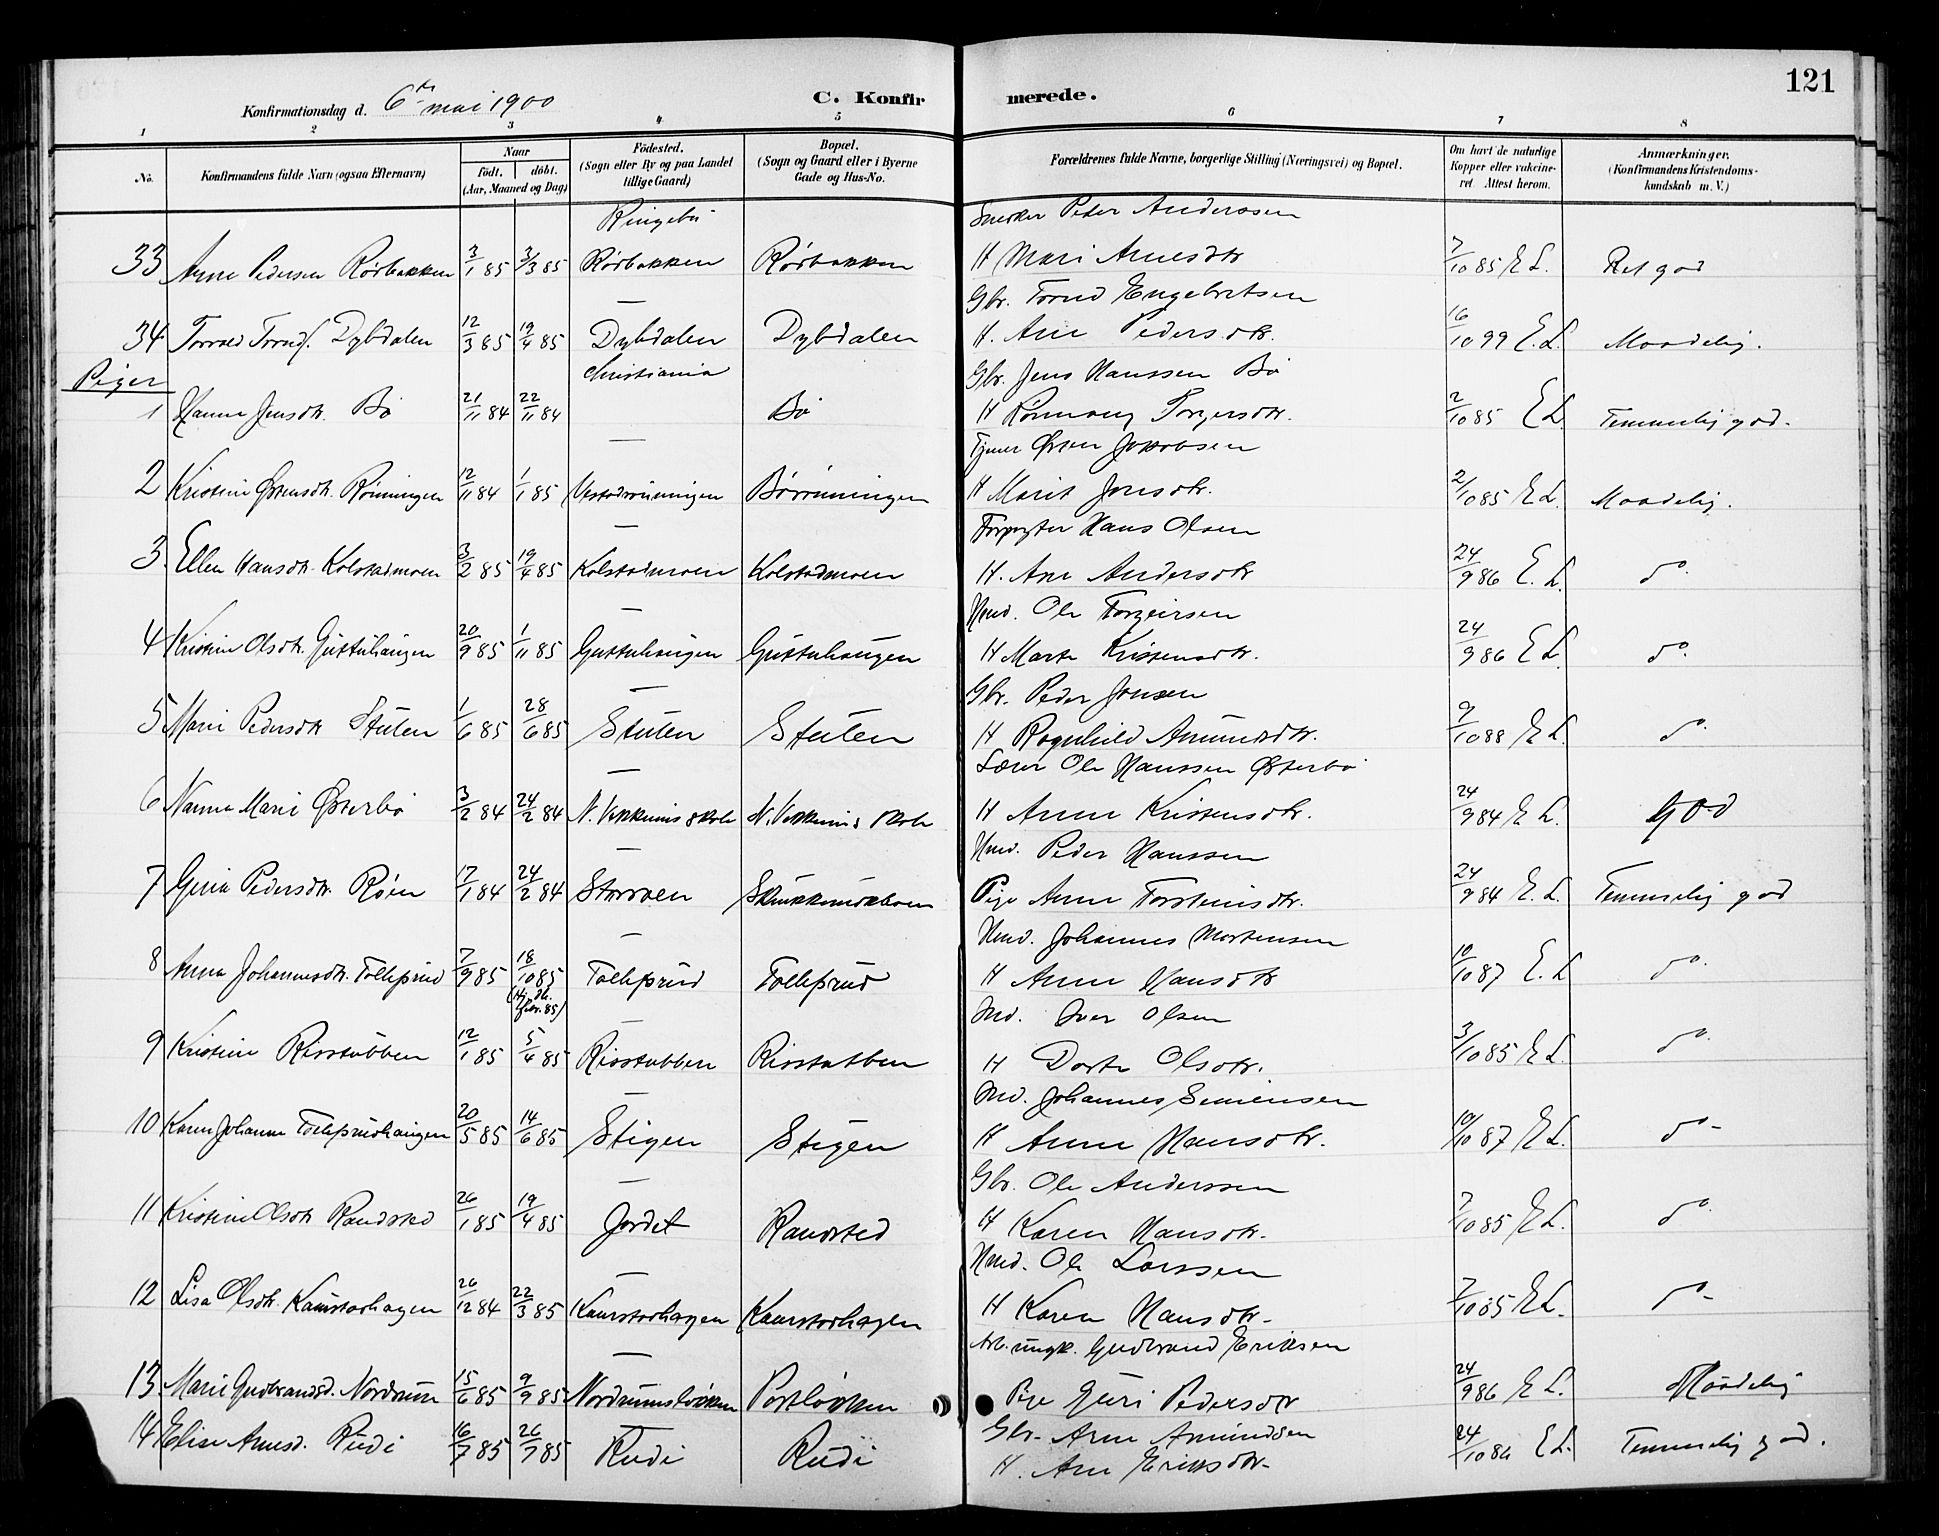 121
Konfirmationsdag d. 6te mai 1900
C. Konfirmerede.
1 2 3 4 5 6 7 8
No.
Konfirmandens fulde Navn (ogsaa Efternavn)
Naar
födt. döbt.
(Aar, Maaned og Dag)
Födested.
(Sogn eller By og paa Landet
tillige Gaard)
Bopæl.
(Sogn og Gaard eller i Byerne
Gade og Hus-No.
Forældrenes fulde Navne, borgerlige Stilling (Næringsvei) og Bopæl.
Om havt de naturlige
Kopper eller vakcineret. Attest herom.
Anmærkninger.
(Konfirmandens Kristendomskundskab m. V.)
Ringebu Snekker Peder Anderssen
33 Arne Pedersen Rörbakken 3/1 85 3/3 85 Rörbakken Rörbakken H Mari Arnesdtr 7/10 85 E L. Ret god
— Gbr. Torud Engebretsen
34 Torvald Toruds. Dybdalen 12/3 85 19/4 85 Dybdalen Dybdalen H. Ane Pedersdtr. 16/10 99 E. L. Maadelig.
Piger
Christiania Gbr. Jens Hanssen Bö
1 Hanna Jensdtr. Bö 21/11 84 22/11 84 Bö H Ronnaug Torgersdtr. 2/10 85 E L. Temmelig god.
— Tjener Østen Jakobsen
2 Kristine Østensdtr. Rönningen 12/11 84 1/1 85 Vestadrönningen Börönningen H Marit Jonsdtr. 2/10 85 E L. Maadelig.
— Forpagter Hans Olsen
3. Ellen Hansdtr. Kolstadmoen 3/2 85 19/4 85 Kolstadmoen Kolstadmoen H. Ane Andersdtr 24/9 86 E. L. do.
— Hmd. Ole Torgeirsen
4 Kristine Olsdtr. Guttuhaugen 20/9 85 1/11 85 Guttuhaugen Guttuhaugen H Marte Kristensdtr. 24/9 86 E L. do.
— Gbr. Peder Jonsen
5 Marie Pedersdtr Stulen 1/6 85 28/6 85 Stulen Stulen H Ragnhild Amundsdtr. 9/10 88 E L. do.
— Lærer Ole Hanssen Østerbö
6 Nanna Marie Østerbö 3/2 84 24/2 84 N. Vekkums skole N. Vekkums skole H Anne Kristensdtr. 24/9 84 E L. god
— Hmd. Peder Hanssen
7 Gina Pedersdtr. Röen 17/1 84 24/2 84 Storroen Pige Anne Torsteinsdtr. 24/9 84 E. L. Temmelig god
— Hmd. Johannes Mortensen
8 Anna Johannesdtr. Tollefsrud 7/9 85 18/10 85 Tollefsrud Tollefsrud H Anne Hansdtr 10/10 87 E. L do.
— Ind. Iver Olsen
9 Kristine Risstubben 12/1 85 5/4 85 Risstubben Risstubben H Dorte Olsdtr. 3/10 85 E L. do.
— Ind. Johannes Simensen
10 Karen Johanne Tollefsrudhaugen 20/5 85 14/6 85 Stigen Stigen H Anne Hansdtr. 10/10 87 E L. do-
— Gbr. Ole Anderssen
11 Kristine Olsdtr Randsted 26/1 85 19/4 85 Jordet Randsted H Karen Hansdtr. 7/10 85 E L. do.
— Hmd. Ole Larssen
12 Lisa Olsdtr. Kaurstadhagen 26/12 84 22/3 85 Kaurstadhagen Kaurstadhagen H Karen Hansdtr- 7/10 85 E L. do-
— Arb. ungk. Gudbrand Eriksen
13. Marie Gudbrandsd. Nordrum 15/6 85 9/9 85 Nordrumslökken Portlökken Pige Guri Pedersdtr 24/9 86 E L. Maadelig
Gbr. Arne Amundsen
14 Elise Arnesd. Rudi 16/7 85 26/7 85 Rudi Rudi H. Ane Eriksdtr- 24/10 86 E L. Temmelig god.